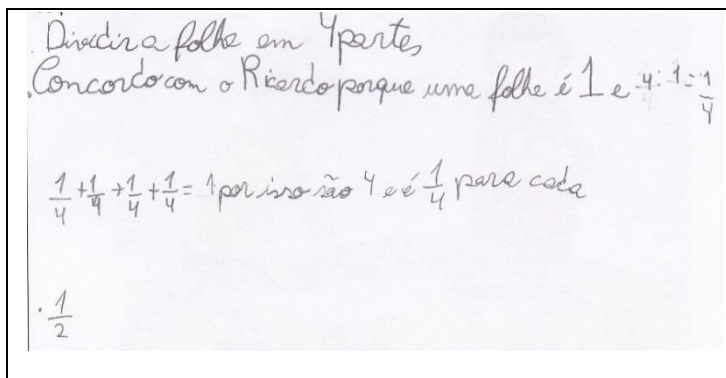 . Dividir a folha em 4 partes
. Concordo com o Ricardo porque uma folha é 1 e 4:1=1/4
1/4+1/4+1/4+1/4=1 por isso são 4 e é 1/4 para cada
. 1/2